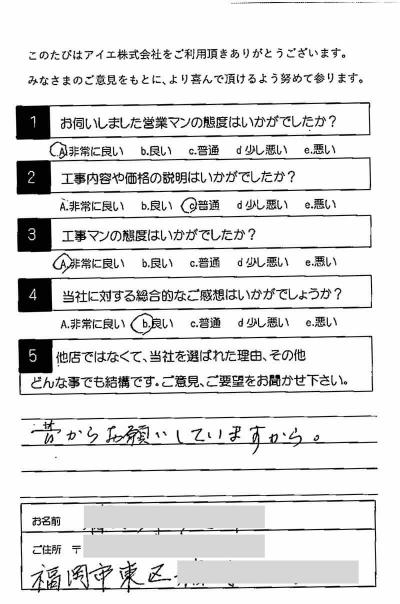 このたびはアイエ株式会社をご利用頂きありがとうございます。
みなさまのご意見をもとに、より喜んで頂けるよう努めて参ります。
1 お伺いしました営業マンの態度はいかがでしたか?
A.非常に良い b.良い c.普通 d 少し悪い e.悪い
2 工事内容や価格の説明はいかがでしたか?
A.非常に良い b.良い c普通 d 少し悪い e.悪い
3 工事マンの態度はいかがでしたか?
A.非常に良い b.良い c.普通 d 少し悪い e.悪い
4 当社に対する総合的なご感想はいかがでしょうか?
A.非常に良い b.良い c.普通 d 少し悪い e.悪い
5 他店ではなくて、当社を選ばれた理由、その他
どんな事でも結構です。ご意見、ご要望をお聞かせ下さい。
昔からお願いしていますから。
お名前
ご住所 〒
福岡市東区